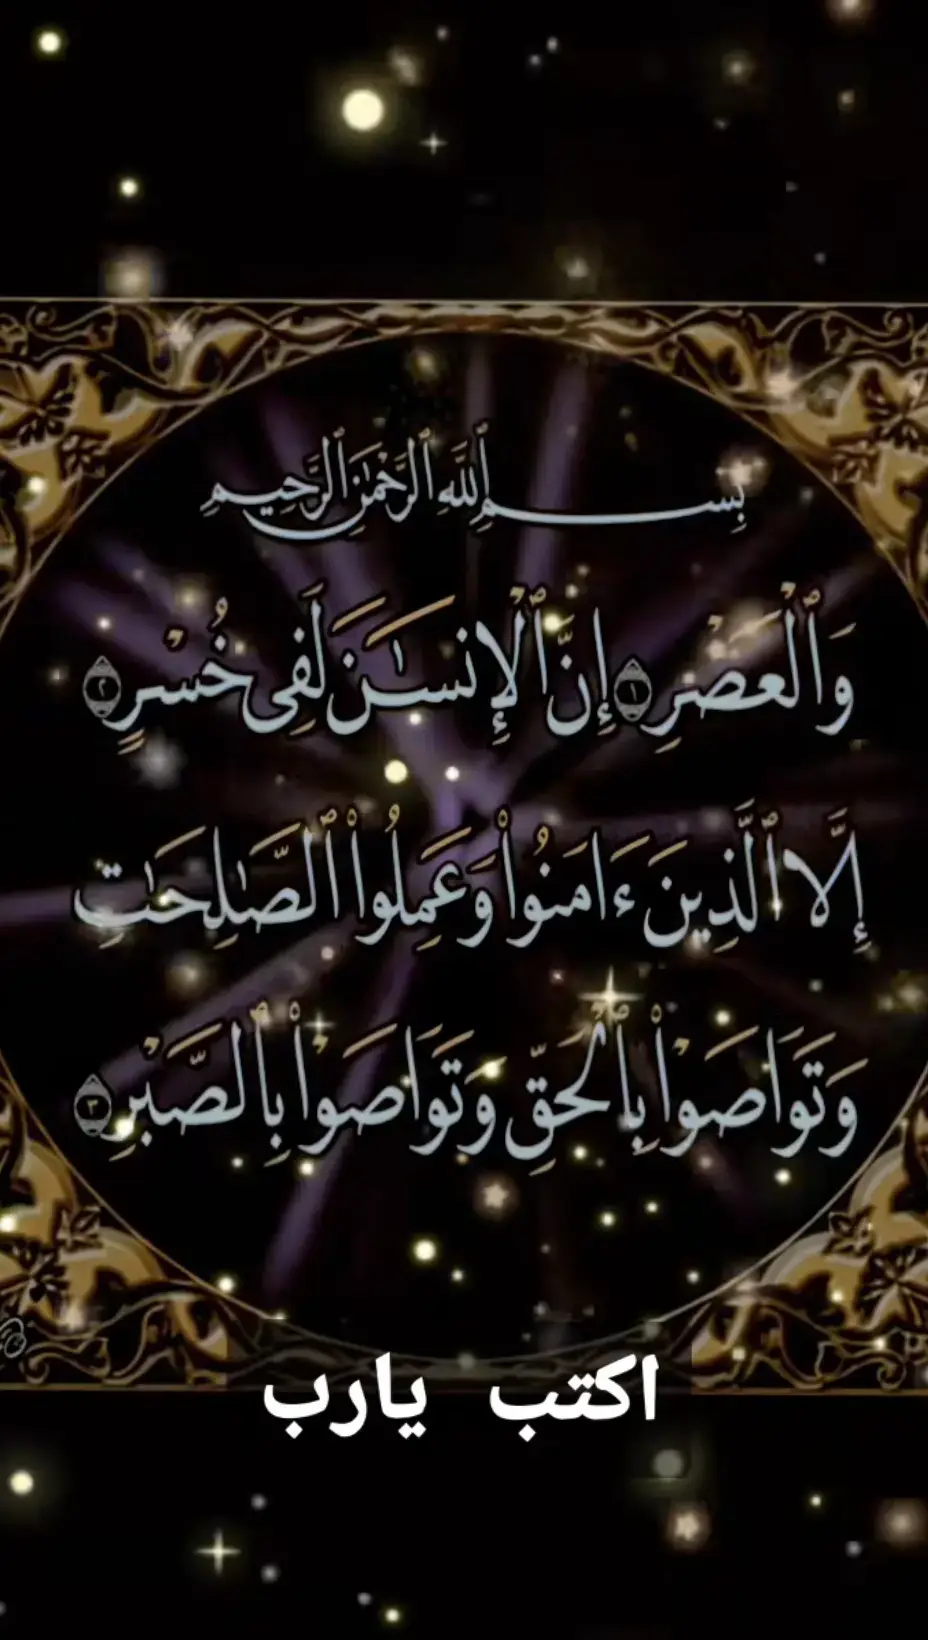 بِسْمِ ٱللَّهِ ٱلرَّحْمَٰنِ ٱلرَّحِيمِ
وَٱلْعَصْرِ ١ إِنَّ ٱلْإِنسَـٰنَ لَفِى خُسْرٍ ٢
إِلَّا ٱلَّذِينَ ءَامَنُوا۟ وَعَمِلُوا۟ ٱلصَّـٰلِحَـٰتِ
وَتَوَاصَوْا۟ بِٱلْحَقِّ وَتَوَاصَوْا۟ بِٱلصَّبْرِ ٣
اكتب يارب